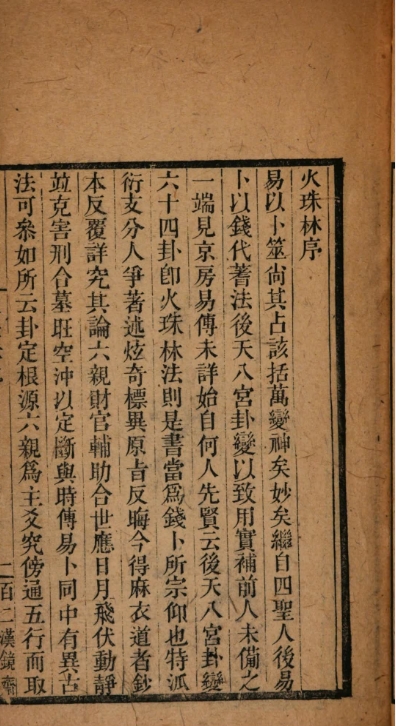 火珠林序
易以卜筮尙其占該括萬變神矣妙矣繼自四聖人後易
卜以錢代蓍法後天八宮卦變以致用實補前人未備之
一端見京房易傳未詳始自何人先賢云後天八宮卦變
六十四卦卽火珠林法則是書當爲錢卜所宗仰也特派
衍支分人爭著述炫奇標異原旨反晦今得麻衣道者鈔
本反覆詳究其論六親財官輔助合世應日月飛伏動靜
竝克害刑合墓旺空沖以定斷與時傳易卜同中有異古
法可叅如所云卦定根源六親爲主爻究傍通五行而取
二 百二漢鏡齋